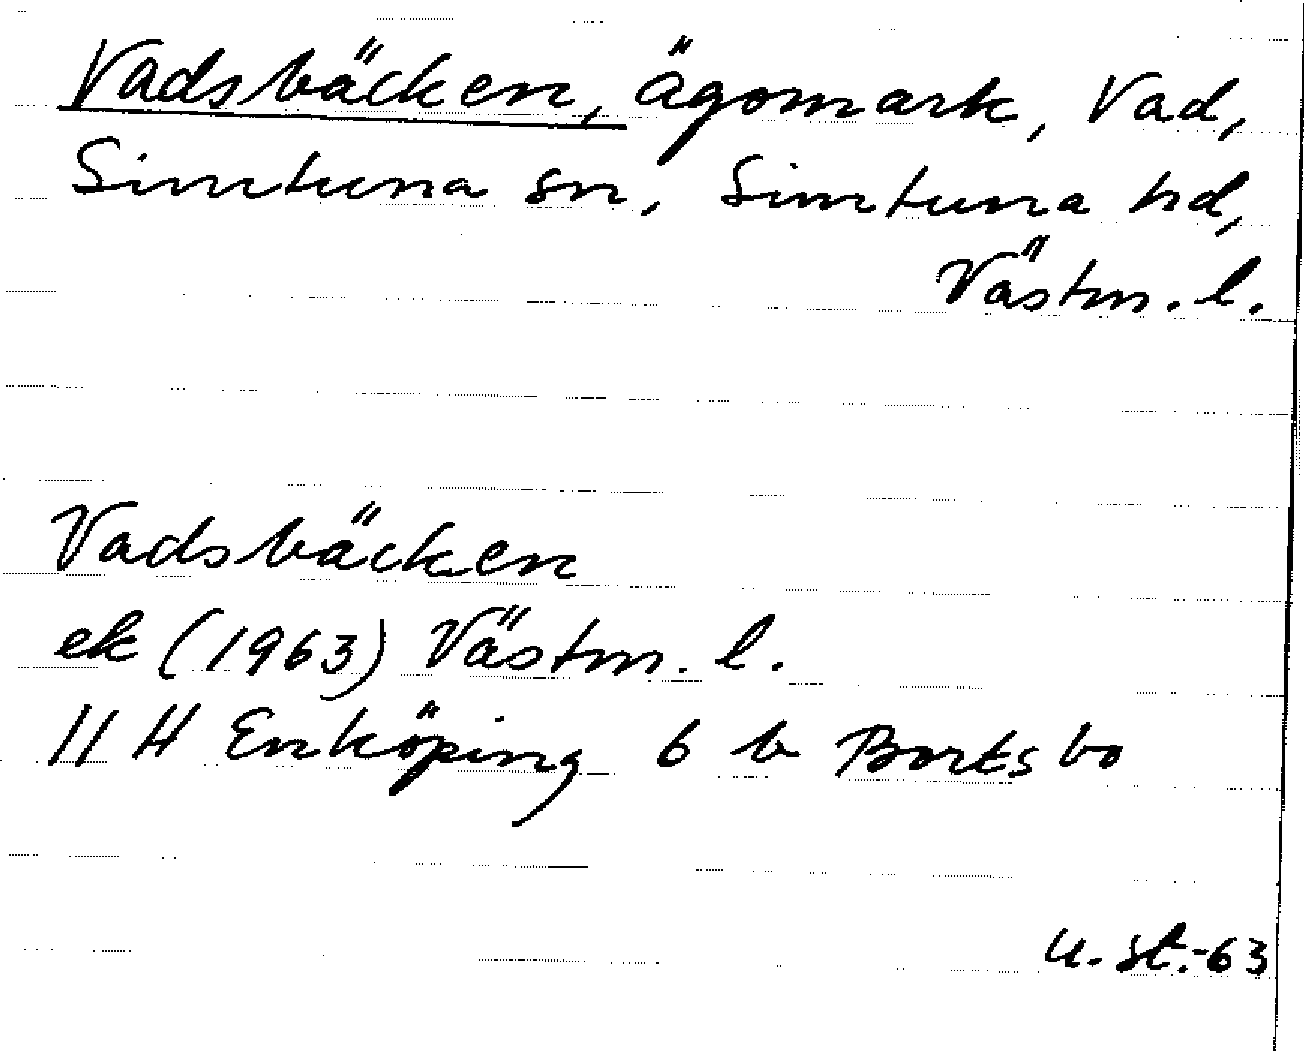 Vadsbäcken, ägomark, Vad,
Simtuna sn, Simtuna hd,
Västm. l.
Vadsbäcken
ek (1963) Västm. l.
11 H Enköping 6 b Bortsbo
U. St.-63